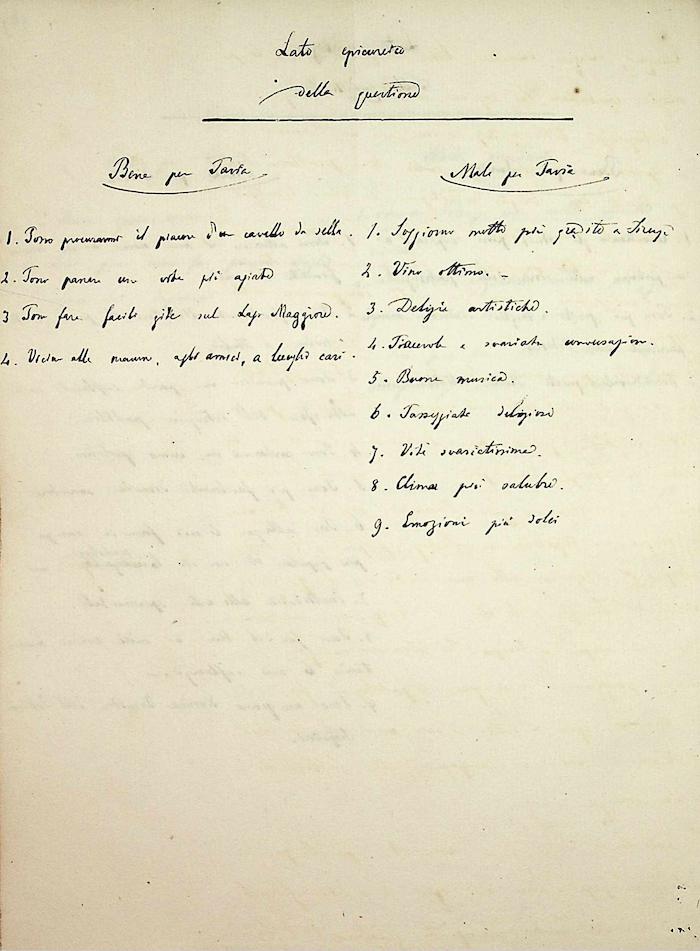 Lato epicureico
della questione
Bene per Pavia
1. Posso procurarmi il piacere d'un cavallo da sella.
2. Posso passare una vita più agiata
3 Posso fare facili gite sul Lago Maggiore.
4. Vicino alla mamma, agli amici, a luoghi cari.
Male per Pavia
1. Soggiorno molto più gradito a Firenze
2. Vino ottimo. –
3. Delizie artistiche.
4. Piacevole e svariata conversazione.
5. Buona musica.
6. Passeggiate deliziose
7. Vita svariatissima.
8. Clima più salubre.
9. Emozioni più dolci